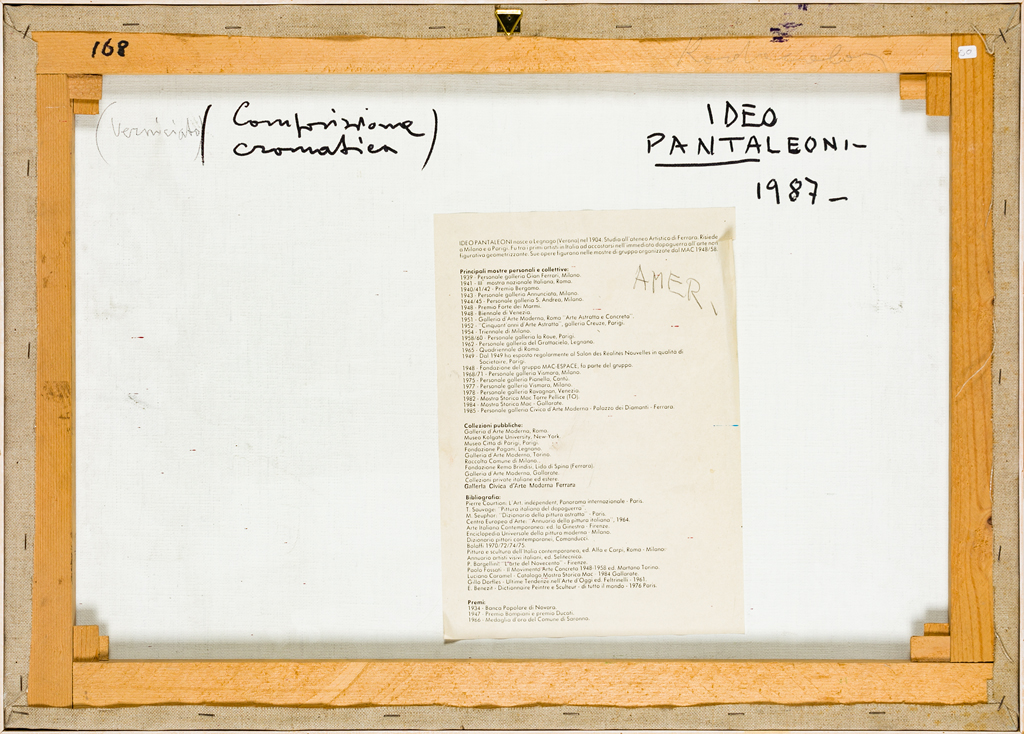 168
20
(verniciato)
(Composizione
cromatica)
IDEO
PANTALEONI-
1987-
AMER.
IDEO PANTALEONI nasce a Legnago (Verona) nel 1904. Studia all'ateneo Artistico di Ferrara. Risiede
a Milano e a Parigi. Fu tra i primi artisti in Italia ad accostarsi nell'immediato dopoguerra all'arte non
figurativa geometrizzante. Sue opere figurano nelle mostre di gruppo organizzate dal MAC 1948/58.
Principali mostre personali e collettive:
1939 - Personale galleria Gian Ferrari, Milano.
1941 - III mostra nazionale Italiana, Roma.
1940/41/42 - Premio Bergamo.
1943 - Personale galleria Annunciata, Milano.
1944/45 - Personale galleria S. Andrea, Milano.
1948 - Premio Forte dei Marmi.
1948 - Biennale di Venezia.
1951 - Galleria d'Arte Moderna, Roma "Arte Astratta e Concreta".
1952 - "Cinquant'anni d'Arte Astratta", galleria Creuze, Parigi.
1954 - Triennale di Milano.
1958/60 - Personale galleria la Roue, Parigi.
1962 - Personale galleria del Grattacielo, Legnano.
1965 - Quadriennale di Roma.
1949 - Dal 1949 ha esposto regolarmente al Salon des Realites Nouvelles in qualità di
Societaire, Parigi.
1948 - Fondazione del gruppo MAC-ESPACE, fa parte del gruppo.
1968/71 - Personale galleria Vismara, Milano.
1975 - Personale galleria Pianella, Cantù.
1977 - Personale galleria Vismara, Milano.
1978 - Personale galleria Ravagnan, Venezia.
1982 - Mostra Storica Mac Torre Pellice (TO).
1984 - Mostra Storica Mac - Gallarate.
1985 - Personale galleria Civica d'Arte Moderna - Palazzo dei Diamanti - Ferrara.
Collezioni pubbliche:
Galleria d'Arte Moderna, Roma.
Museo Kolgate University, New York.
Museo Città di Parigi, Parigi.
Fondazione Pagani, Legnano.
Galleria d'Arte Moderna, Torino.
Raccolta Comune di Milano.
Fondazione Remo Brindisi, Lido di Spina (Ferrara).
Galleria d'Arte Moderna, Gallarate.
Collezioni private italiane ed estere.
Galleria Civica d'Arte Moderna Ferrara
Bibliografia:
Pierre Courtion: L'Art. independent, Panorama internazionale - Paris.
T. Sauvage: "Pittura italiana del dopoguerra".
M. Seuphor: "Dizionario della pittura astratta" - Paris.
Centro Europeo d'Arte: "Annuario della pittura italiana", 1964.
Arte Italiana Contemporanea: ed. la Ginestra - Firenze.
Enciclopedia Universale della pittura moderna - Milano.
Dizionario pittori contemporanei, Comanducci.
Bolaffi 1970/72/74/75.
Pittura e scultura dell'Italia contemporanea, ed. Alfa e Carpi, Roma - Milano.
Annuario artisti visivi italiani, ed. Selitecnica.
P. Bargellini: "L'Arte del Novecento" - Firenze.
Paolo Fossati - Il Movimento Arte Concreta 1948-1958 ed. Martano Torino.
Luciano Caramel - Catalogo Mostra Storica Mac - 1984 Gallarate.
Gillo Dorfles - Ultime Tendenze nell'Arte d'Oggi ed. Feltrinelli - 1961.
E. Benezit - Dictionnaire Peintre e Sculteur - di tutto il mondo - 1976 Paris.
Premi:
1934 - Banca Popolare di Novara.
1947 - Premio Bompiani e premio Ducati.
1966 - Medaglia d'oro del Comune di Soranna.